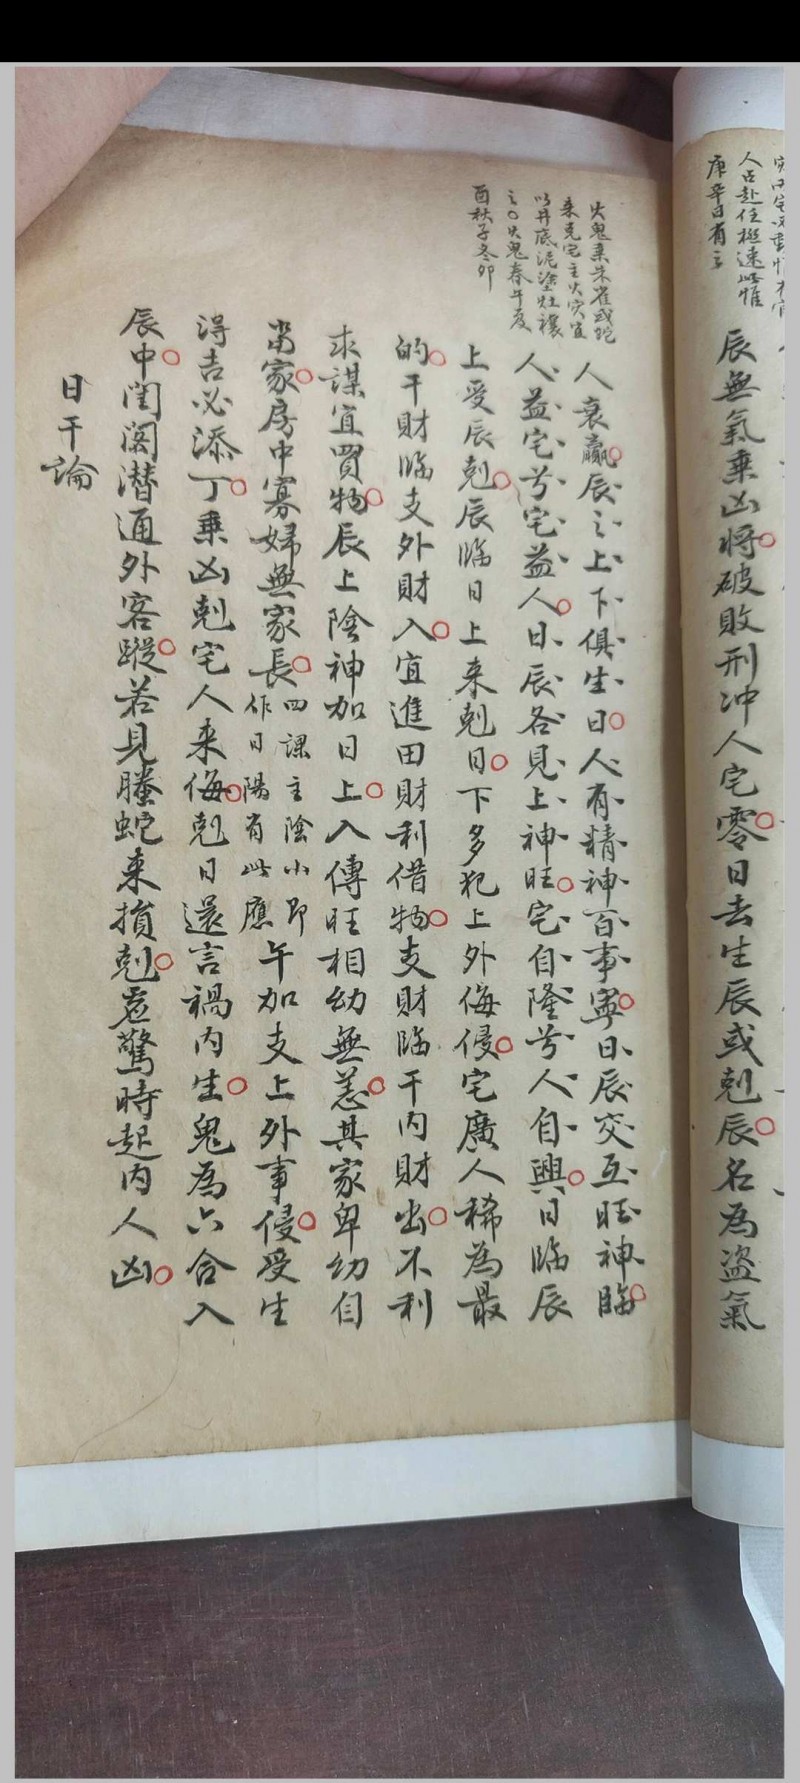 人占赴任極速此惟
庚辛日有之
辰無氣乗凶将破敗刑冲人宅零日去生辰或剋辰名為盗氣
火鬼乗朱雀或蛇
来克宅主火灾宜
以井底泥塗灶禳
之○火鬼春午夏
酉秋子冬卯
人衰羸辰之上下俱生日人有精神百事寧日辰交互旺神臨
人益宅兮宅益人日辰各見上神旺宅自隆兮人自興日臨辰
上受辰剋辰臨日上来剋日下多犯上外侮侵宅廣人稀為最
的干財臨支外財入宜進田財利借物支財臨干内財出不利
求謀宜買物辰上陰神加日上入傳旺相幼無恙其家卑幼自
當家房中寡婦無家長四課主陰小即作日陽有此應午加支上外事侵受生
得吉必添丁乗凶剋宅人来侮剋日還言禍内生鬼為六合入
辰中閨閣潜通外客蹤若見螣蛇来損剋虚驚時起内人凶
日干論